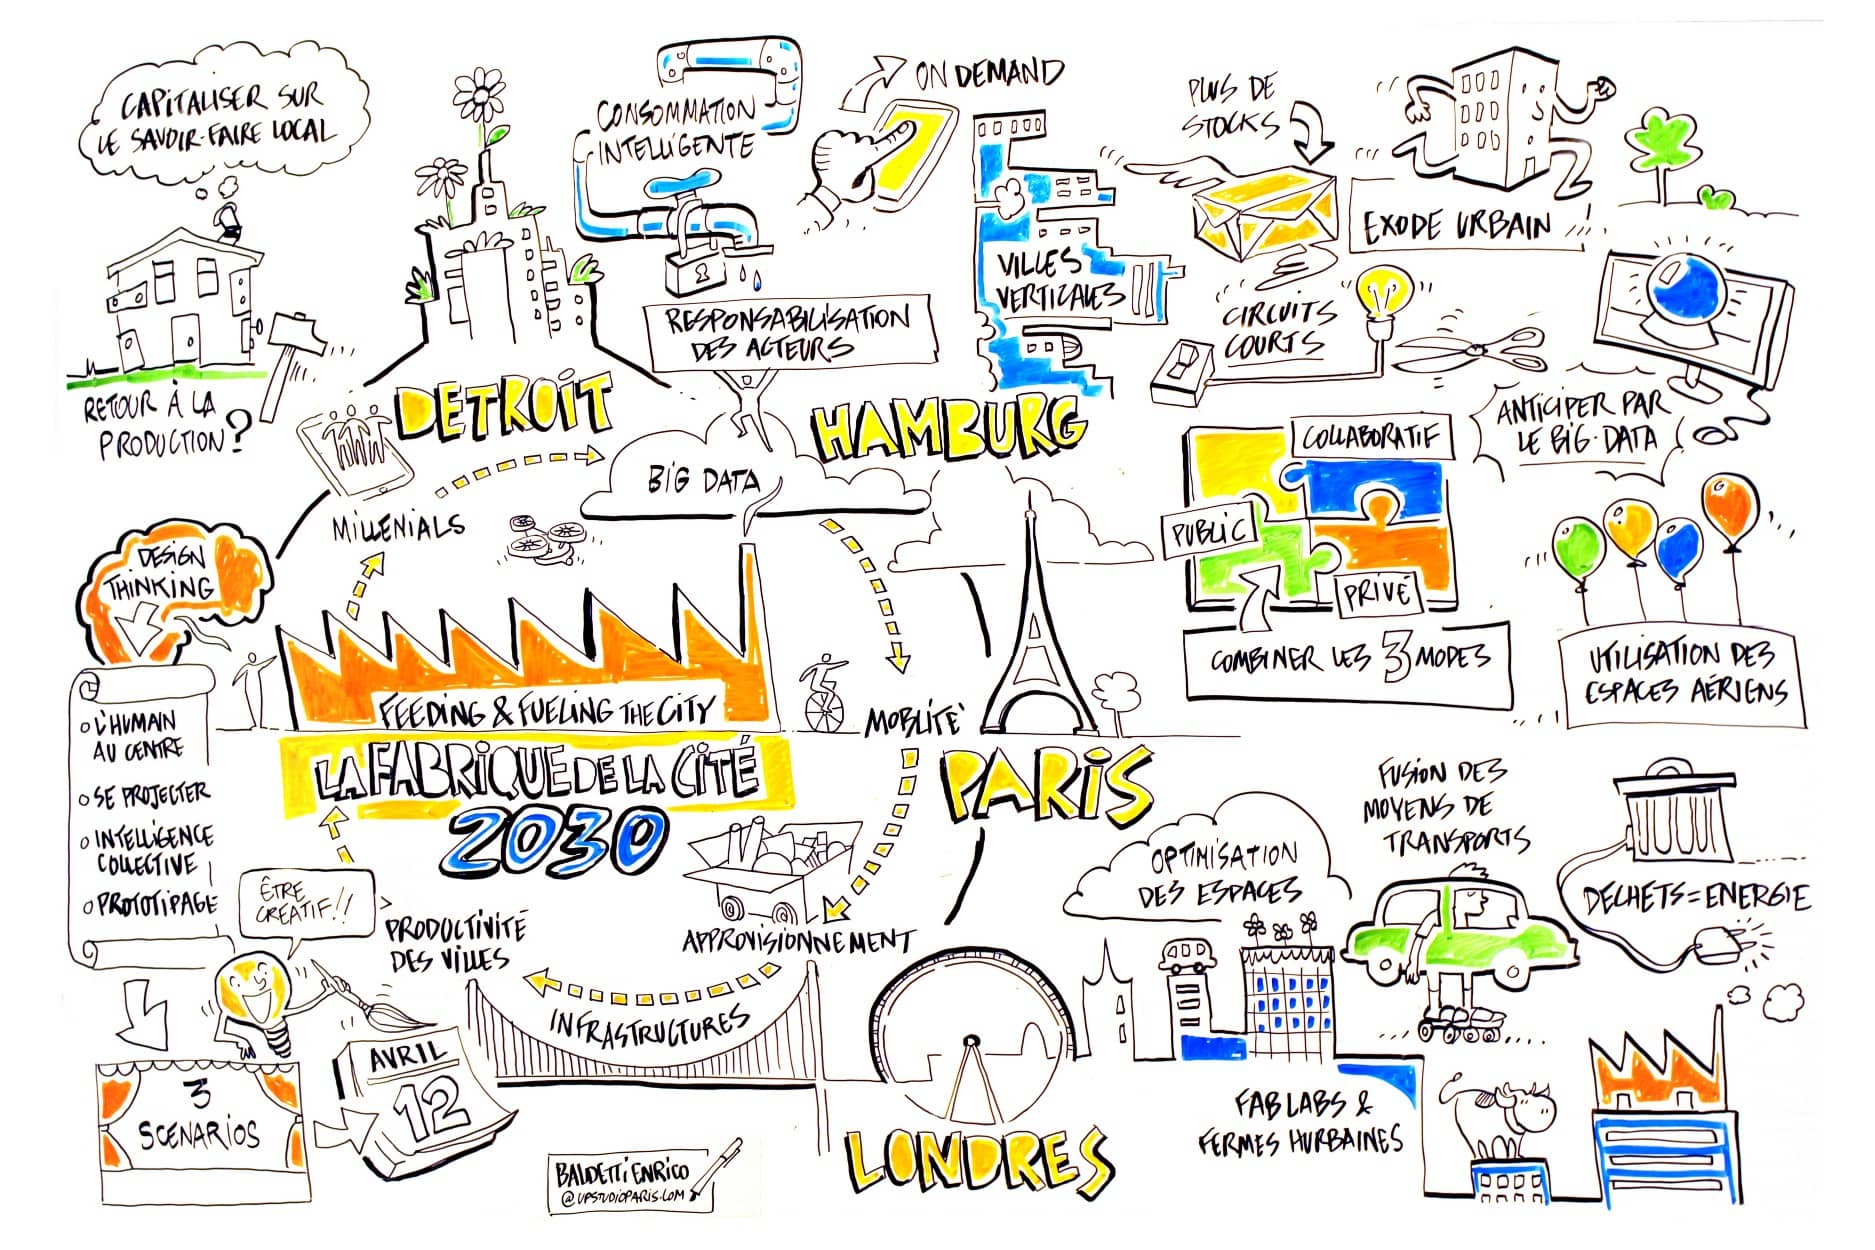 CAPITALISER SUR
LE SAVOIR-FAIRE LOCAL
RETOUR À LA
PRODUCTION ?
CONSOMMATION
INTELLIGENTE
RESPONSABILISATION
DES ACTEURS
DETROIT
MILLENIALS
BIG DATA
ON DEMAND
VILLES
VERTICALES
HAMBURG
PLUS DE
STOCKS
EXODE URBAIN !
CIRCUITS
COURTS
ANTICIPER PAR
LE BIG-DATA
COLLABORATIF
PUBLIC
PRIVÉ
COMBINER LES 3 MODES
UTILISATION DES
ESPACES AÉRIENS
DESIGN
THINKING
L'HUMAIN
AU CENTRE
SE PROJECTER
INTELLIGENCE
COLLECTIVE
PROTOTIPAGE
FEEDING & FUELING THE CITY
LA FABRIQUE DE LA CITÉ
2030
MOBLITÉ
PARIS
APPROVISIONNEMENT
INFRASTRUCTURES
PRODUCTIVITÉ
DES VILLES
ÊTRE
CREATIF!!
3
SCENARIOS
AVRIL
12
BAUDETTI ENRICO
@UPSTUDIOPARIS.COM
LONDRES
OPTIMISATION
DES ESPACES
FUSION DES
MOYENS DE
TRANSPORTS
DECHETS = ENERGIE
FAB LABS &
FERMES HURBAINES